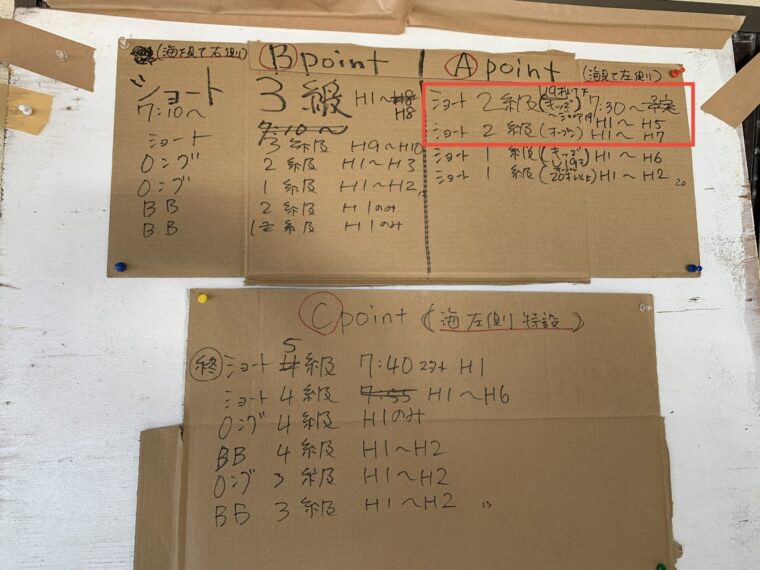 (海を見て右側)
Bpoint
ショート 3級 H1〜H8
H8
7:10〜
7:10〜
ショート 3級 H9〜H10
ロング 2級 H1〜H3
ロング 1級 H1〜H2
BB 2級 H1のみ
BB 1級 H1のみ
Apoint
(海見て左側)
19才以下
ショート 2級(キッズ 7:30〜予定
H1〜H5
ショート 2級(オープン) H1〜H7
ショート 1級(キッズ H1〜H6
ショート 1級(20才以上) H1〜H2
20
Cpoint (海左側特設)
5
終 ショート 4級 7:40スタート H1
ショート 4級 7:55 H1〜H6
ロング 4級 H1のみ
BB 4級 H1〜H2
ロング 3級 H1〜H2
BB 3級 H1〜H2 13